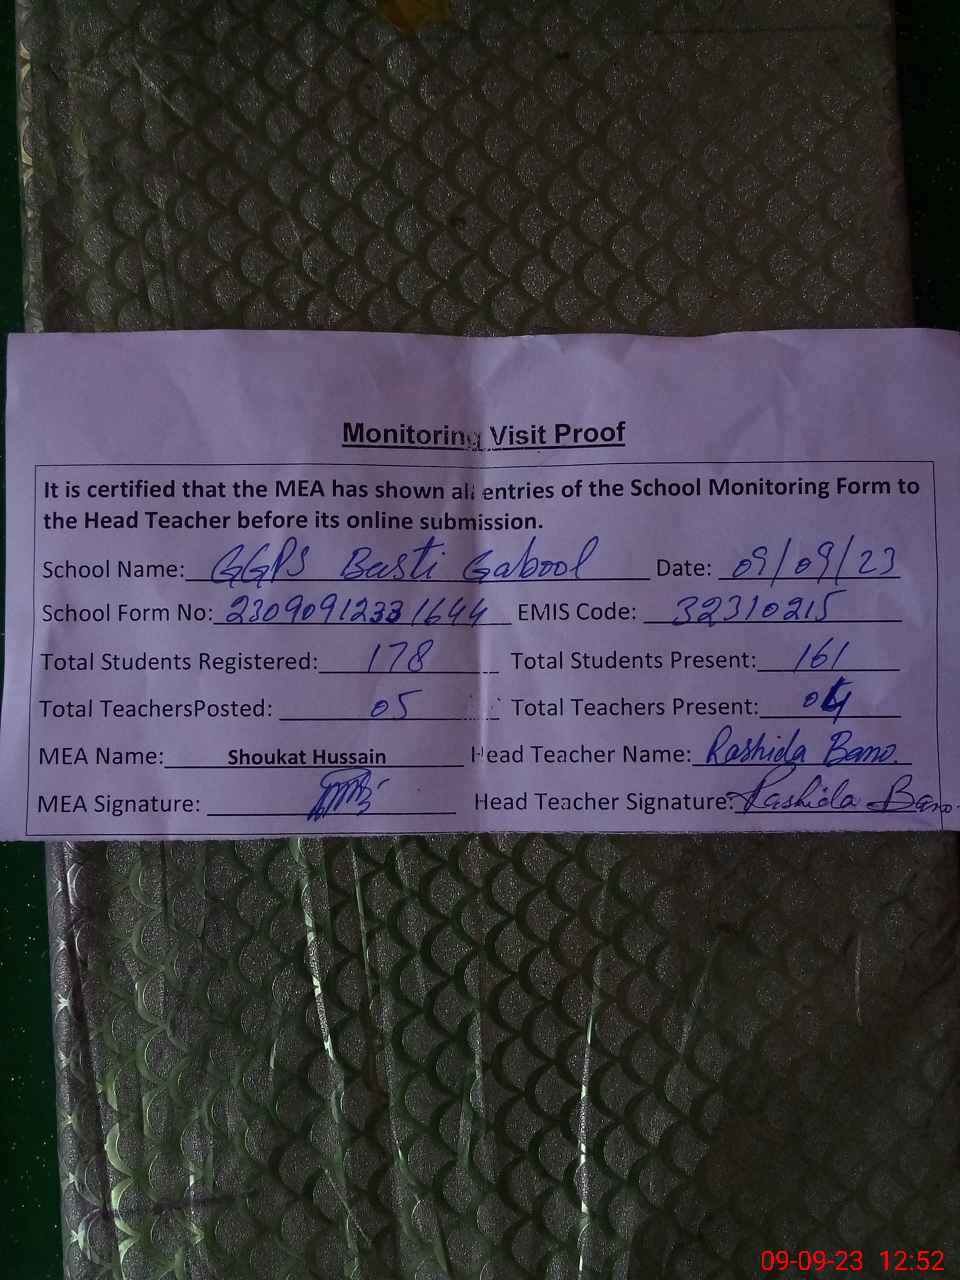 Monitoring Visit Proof
It is certified that the MEA has shown all entries of the School Monitoring Form to
the Head Teacher before its online submission.
School Name: GGPS Basti Gabool Date: 09/09/23
School Form No: 23090912331644 EMIS Code: 32310215
Total Students Registered: 178 Total Students Present: 161
Total TeachersPosted: 05 Total Teachers Present: 04
MEA Name: Shoukat Hussain Head Teacher Name: Rashida Bano.
MEA Signature: Head Teacher Signature: Rashida Bano.
09-09-23 12:52